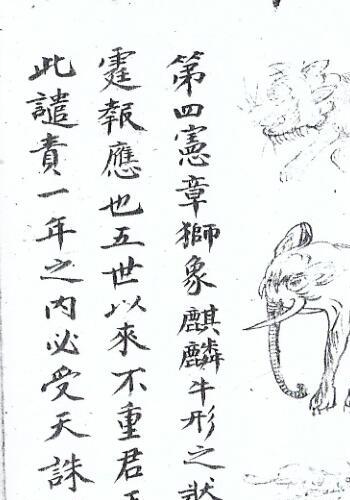 第四憲章獅象麒麟牛形之狀
霆報應也五世以來不重君
此譴責一年之內必受天誅